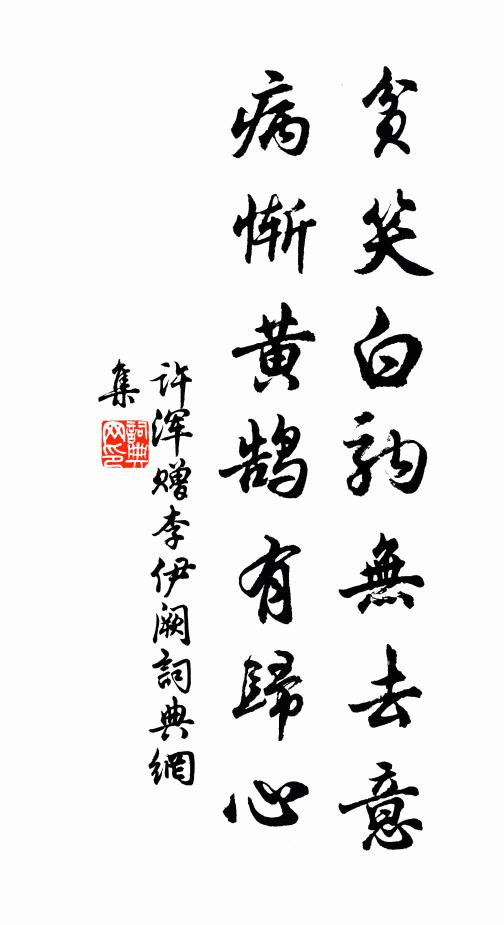 貧笑白駒無去意
病慚黄鵠有歸心
許渾贈李伊闕詞典網
集
詞典
網印